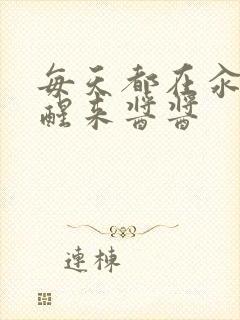 每天都在汆
醒来酱酱
連棟